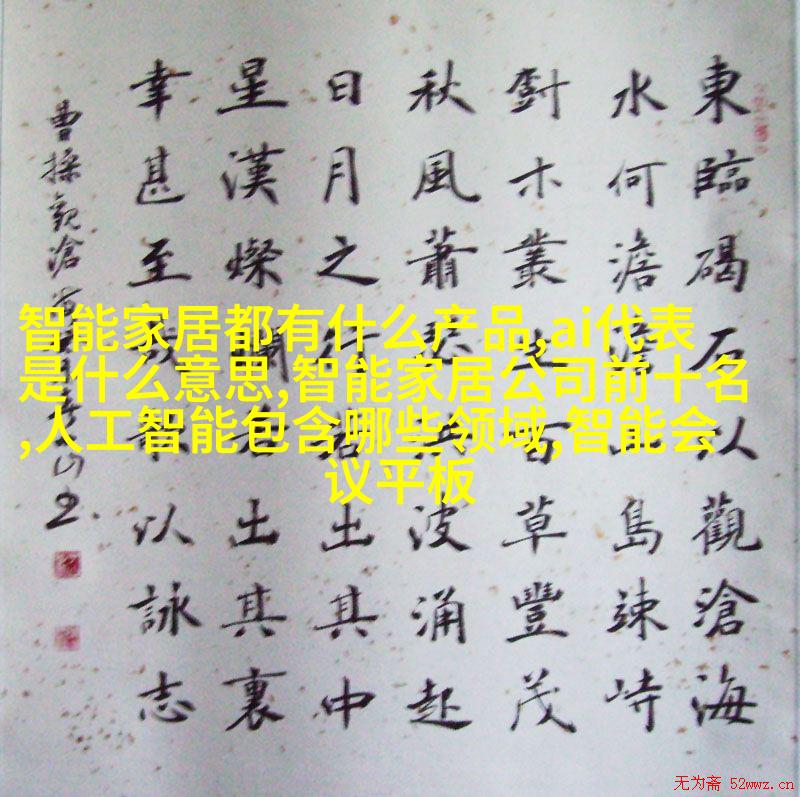 智能家居都有什么产品,ai代表
是什么意思,智能家居公司前十名
,人工智能包含哪些领域,智能会
议平板
東臨碣石以觀滄海
水何澹澹山島竦峙
木叢生百草豐茂
秋風蕭瑟洪波涌起
日月之行若出其中
星漢燦爛若出其裏
幸甚至哉歌以詠志
曹操觀滄
无为斋 52wwz.cn